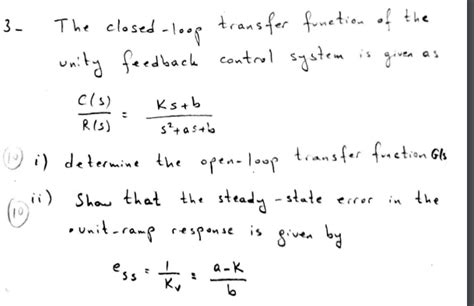 3- The closed-loop transfer function of the
unity feedback control system is given as
C(s)/R(s) = Ks+b/s²+as+b
10 i) determine the open-loop transfer function G(s
10 ii) Show that the steady-state error in the
unit-ramp response is given by
ess = 1/Kv = a-K/b